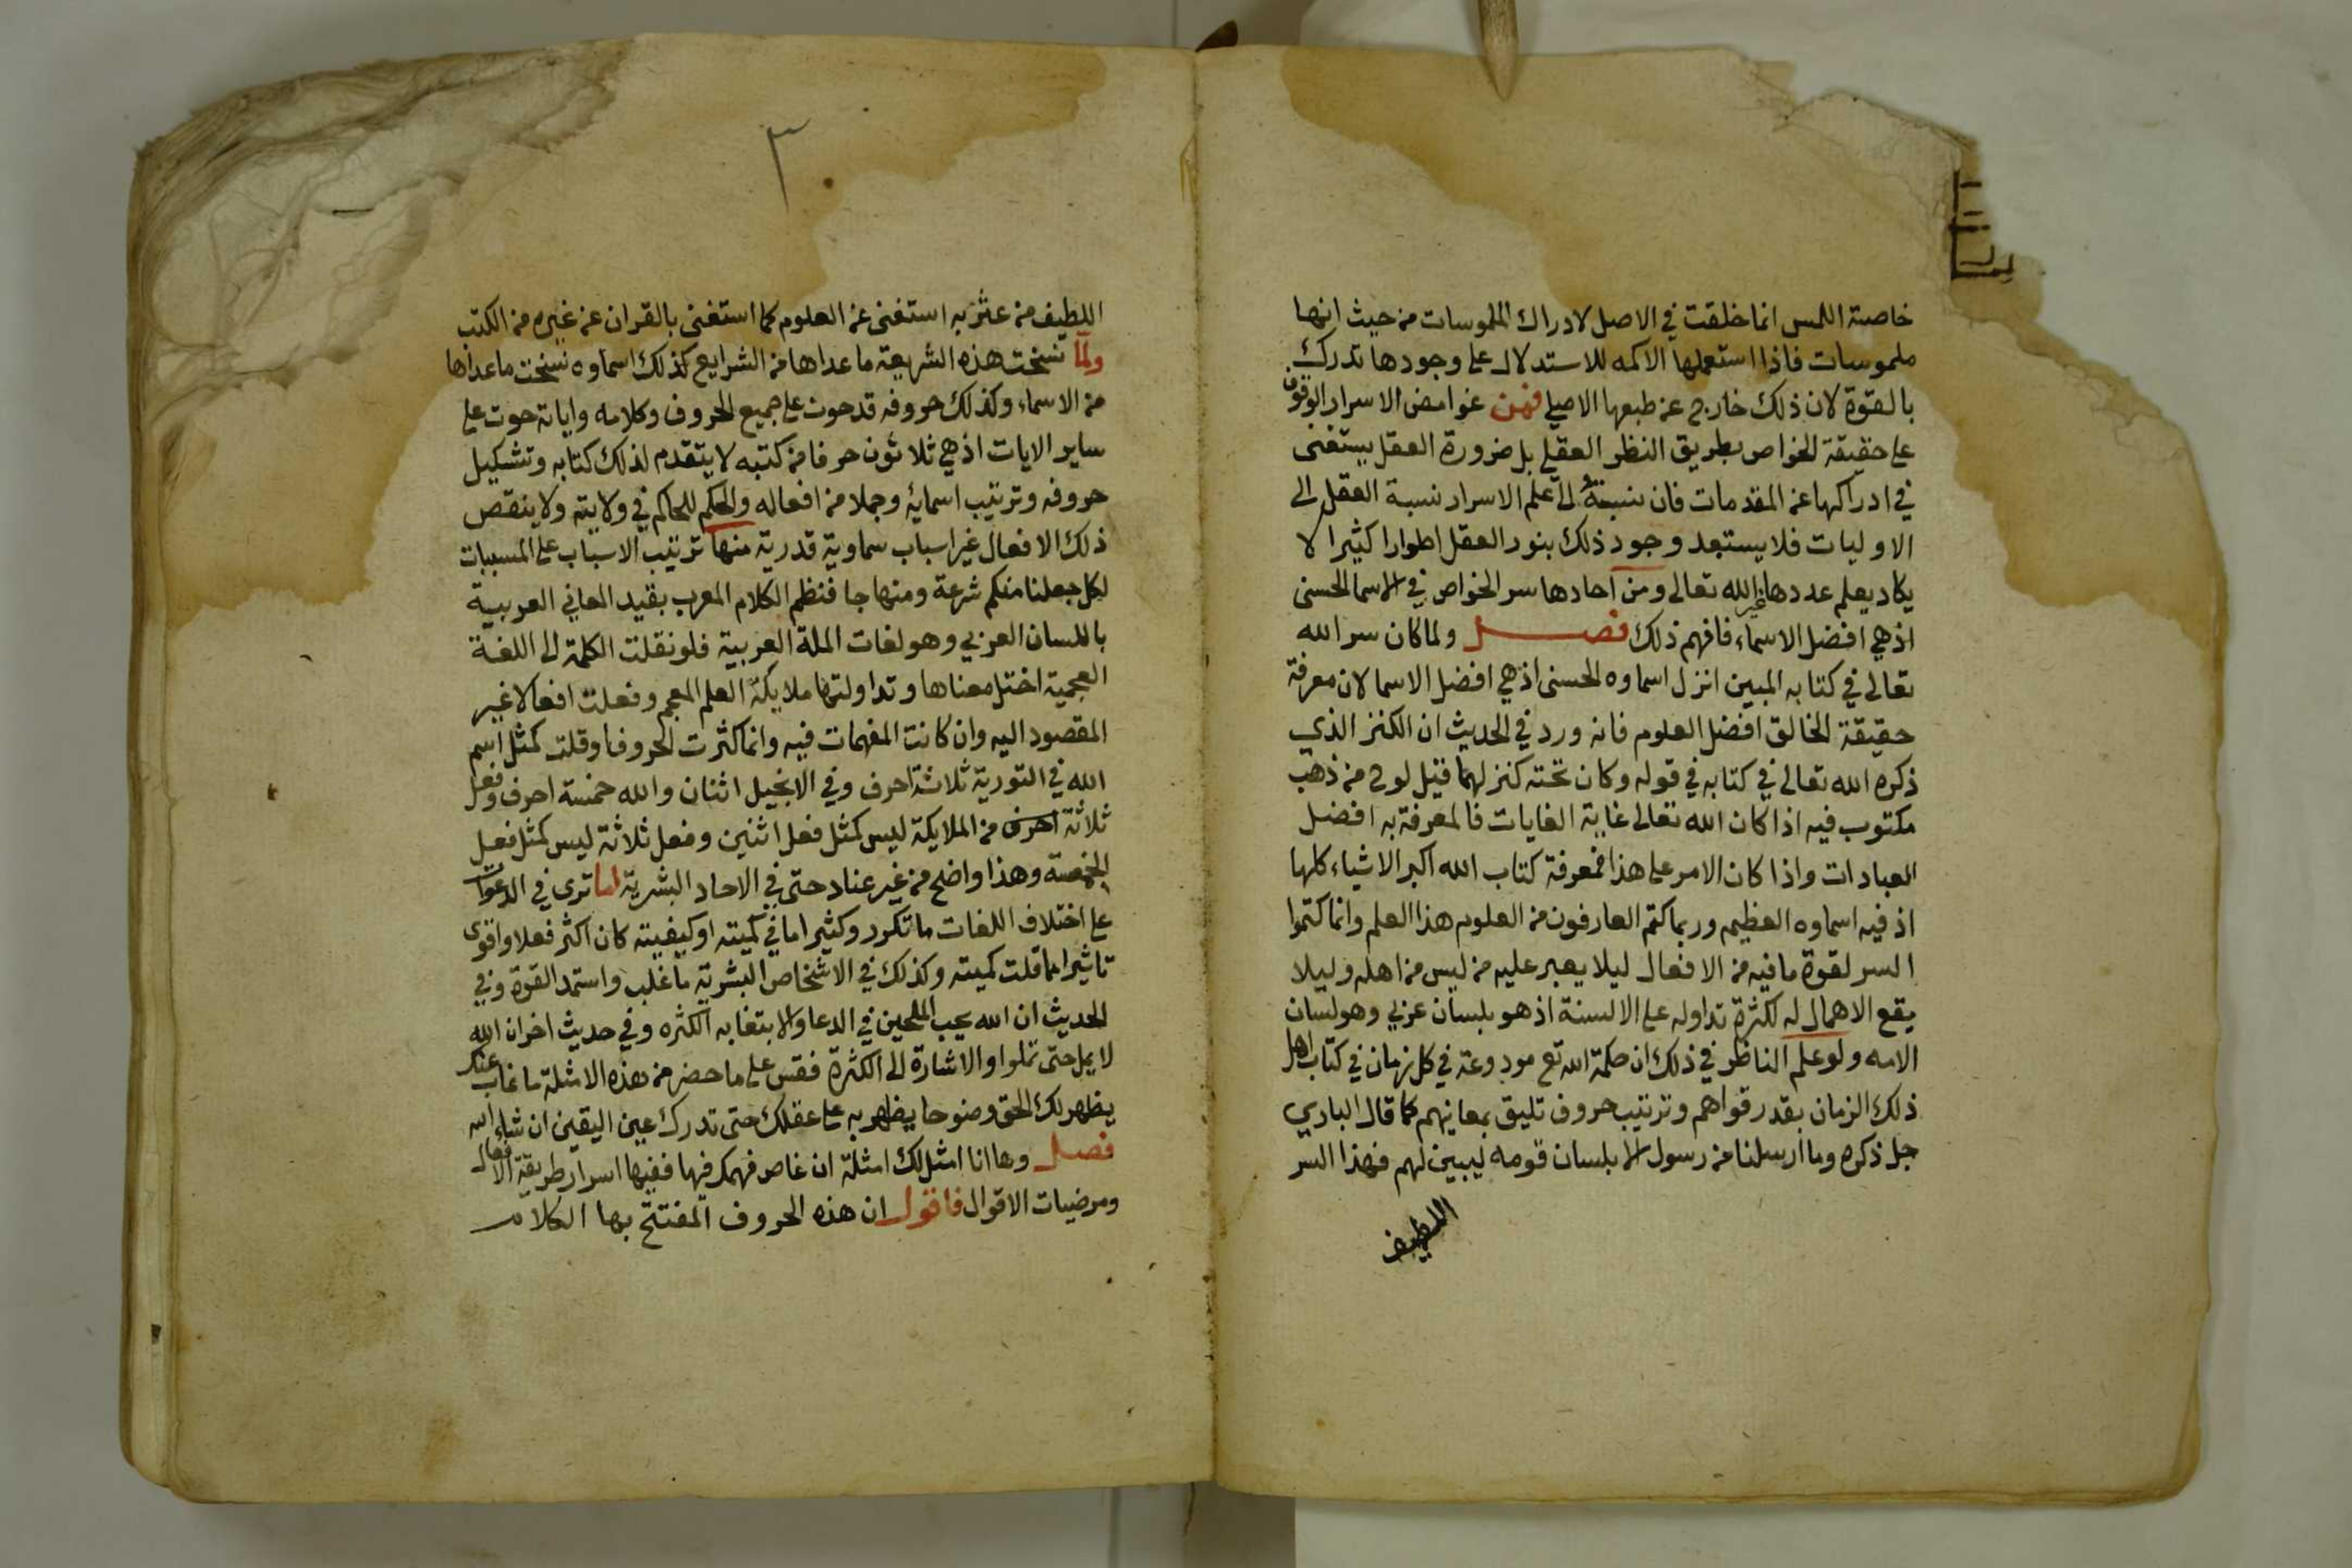 خاصة اللمس انما خلقت في الاصل لادراك الملموسات من حيث انها
ملموسات فاذا استعملها الاكمه للاستدلال على وجودها تدرك
بالقوة لان ذلك خارج عن طبعها الاصلي فمن غوامض الاسرار الوقوف
على حقيقة الخواص بطريق النظر العقلي بل ضرورة العقل يستغنى
في ادراكها عن المقدمات فان نسبته الى علم الاسرار نسبة العقل الى
الاوليات فلا يستبعد وجود ذلك بنور العقل اطوارا كثيرا لا
يكاد يعلم عددها غير الله تعالى ومن احادها سر الخواص في الاسما الحسنى
اذ هي افضل الاسماء فافهم ذلك فصل ولما كان سر الله
تعالى في كتابه المبين انزل اسماوه الحسنى اذ هي افضل الاسما لان معرفة
حقيقة الخالق افضل العلوم فانه ورد في الحديث ان الكنز الذي
ذكره الله تعالى في كتابه في قوله وكان تحته كنز لهما قيل لوح من ذهب
مكتوب فيه اذا كان الله تعالى غاية الغايات فالمعرفة به افضل
العبادات واذا كان الامر على هذا فمعرفة كتاب الله اكبر الاشياء كلها
اذ فيه اسماوه العظيمه وربما كتم العارفون من العلوم هذا العلم وانما كتموا
السر لقوة ما فيه من الافعال ليلا يعبر عليه من ليس من اهله وليلا
يقع الاهمال له لكثرة تداوله على الالسنة اذ هو بلسان عربي وهو لسان
الامه ولو علم الناظر في ذلك ان حكمة الله تع مودوعة في كل زمان في كتاب اهل
ذلك الزمان بقدر قواهم وترتيب حروف تليق بمعانيهم كما قال الباري
جل ذكره وما ارسلنا من رسول الا بلسان قومه ليبين لهم فهذا السر
اللطيف
٣
اللطيف من عثر به استغنى عن العلوم كما استغنى بالقران عن غيره من الكتب
ولما نسخت هذه الشريعة ما عداها من الشرايع كذلك اسماوه نسخت ما عداها
من الاسماء وكذلك حروفه قد حوت على جميع الحروف وكلامه واياته حوت على
ساير الايات اذ هي ثلاثون حرفا من كتبه لا يتقدم لذلك كتابه وتشكيل
حروفه وترتيب اسمايه وجملا من افعاله والحكم للحاكم في ولايته ولا ينقص
ذلك الافعال غير اسباب سماوية قدرية منها ترتيب الاسباب على المسببات
لكل جعلنا منكم شرعة ومنهاجا فنظم الكلام المعرب بقيد المعاني العربية
باللسان العربي وهو لغات الملة العربية فلو نقلت الكلمة الى اللغة
العجمية اختل معناها وتداولتها ملايكة العلم المعجم وفعلت افعالا غير
المقصود اليه وان كانت المفهمات فيه وانما كثرت الحروف او قلت كمثل اسم
الله في التورية ثلاثة احرف وفي الانجيل اثنان والله خمسة احرف وفعل
ثلاثة احرف من الملايكة ليس كمثل فعل اثنين وفعل ثلاثة ليس كمثل فعل
الخمسة وهذا واضح من غير عناد حتى في الاحاد البشرية اما ترى في الدعوات
على اختلاف اللغات ما تكرر وكثير اما في كميته او كيفيته كان اكثر فعلا واقوى
تاثيرا مما قلت كميته وكذلك في الاشخاص البشرية ما غلب واستمد القوة وفي
الحديث ان الله يحب الملحين في الدعا والابتغا به الكثره وفي حديث اخر ان الله
لا يمل حتى تملوا والاشارة الى الكثرة فقس على ما حضر من هذه الامثلة ما غاب عنك
يظهر لك الحق وضوحا يظهر به على عقلك حتى تدرك عين اليقين ان شاء الله
فصل وها انا امثل لك امثلة ان غاص فهمك فيها ففيها اسرار طريقة الافعال
ومرضيات الاقوال فاقول ان هذه الحروف المفتتح بها الكلام